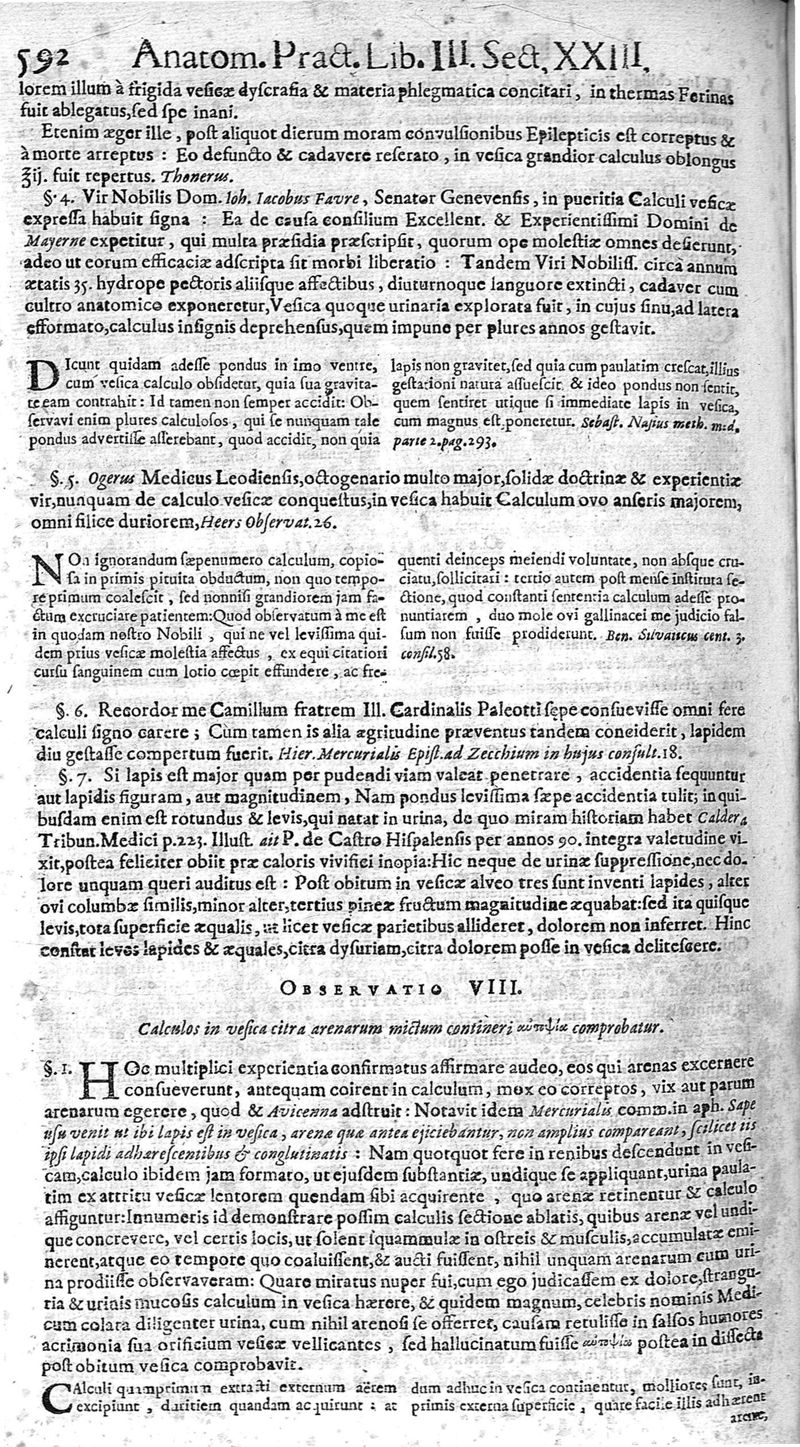 592 Anatom. Pract. Lib. III. Sect. XXIII.
lorem illum à frigida vesicæ dyscrasia & materia phlegmatica concitari, in thermas Ferinas
fuit ablegatus, sed spe inani.
Etenim æger ille, post aliquot dierum moram convulsionibus Epilepticis est correptus &
à morte arreptus : Eo defuncto & cadavere reserato, in vesica grandior calculus oblongus
ʒij. fuit repertus. Thonerus.
§. 4. Vir Nobilis Dom. Ioh. Iacobus Favre, Senator Genevensis, in pueritia Calculi vesicæ
expressa habuit signa : Ea de causa consilium Excellent. & Experientissimi Domini de
Mayerne expetitur, qui multa præsidia præscripsit, quorum ope molestiæ omnes desierunt,
adeo ut eorum efficaciæ adscripta sit morbi liberatio : Tandem Viri Nobiliss. circa annum
ætatis 35. hydrope pectoris aliisque affectibus, diuturnoque languore extincti, cadaver cum
cultro anatomico exponeretur, Vesica quoque urinaria explorata fuit, in cujus sinu, ad latera
efformato, calculus insignis deprehensus, quem impune per plures annos gestavit.
DIcunt quidam adesse pondus in imo ventre,
cum vesica calculo obsidetur, quia sua gravita-
te eam contrahit : Id tamen non semper accidit: Ob-
servavi enim plures calculosos, qui se nunquam tale
pondus advertisse asserebant, quod accidit, non quia
lapis non gravitet, sed quia cum paulatim crescat, illius
gestationi natura assuescit, & ideo pondus non sentit,
quem sentiret utique si immediate lapis in vesica,
cum magnus est, poneretur. Sebast. Nasius meth. med.
parte 2. pag. 293.
§. 5. Ogerus Medicus Leodiensis, octogenario multo major, solidæ doctrinæ & experientiæ
vir, nunquam de calculo vesicæ conquestus, in vesica habuit Calculum ovo anseris majorem,
omni silice duriorem, Heers Observat. 26.
NOn ignorandum sæpenumero calculum, copio-
sa in primis pituita obductum, non quo tempo-
re primum coalescit, sed nonnisi grandiorem jam fa-
ctum excruciare patientem: Quod observatum à me est
in quodam nostro Nobili, qui ne vel levissima qui-
dem prius vesicæ molestia affectus, ex equi citatiori
cursu sanguinem cum lotio cœpit effundere, ac fre-
quenti deinceps meiendi voluntate, non absque cru-
ciatu, sollicitari : tertio autem post mense instituta se-
ctione, quod constanti sententia calculum adesse pro-
nuntiarem, duo mole ovi gallinacei me judicio fal-
sum non fuisse prodiderunt. Ben. Silvaticus cent. 3.
consil. 58.
§. 6. Recordor me Camillum fratrem Ill. Cardinalis Paleotti sępe consuevisse omni fere
calculi signo carere ; Cùm tamen is alia ægritudine præventus tandem conciderít, lapidem
diu gestasse compertum fuerit. Hier. Mercurialis Epist. ad Zecchium in hujus consult. 18.
§. 7. Si lapis est major quam per pudendi viam valeat penetrare, accidentia sequuntur
aut lapidis figuram, aut magnitudinem, Nam pondus levissima sæpe accidentia tulit; in qui-
busdam enim est rotundus & levis, qui natat in urina, de quo miram historiam habet Caldera
Tribun. Medici p. 223. Illust. ait P. de Castro Hispalensis per annos 90. integra valetudine vi-
xit, postea feliciter obiit præ caloris vivifici inopia: Hic neque de urinæ suppressione, nec do-
lore unquam queri auditus est : Post obitum in vesicæ alveo tres sunt inventi lapides, alter
ovi columbæ similis, minor alter, tertius pineæ fructum magnitudine æquabat: sed ita quisque
levis, tota superficie æqualis, ut licet vesicæ parietibus allideret, dolorem non inferret. Hinc
constat leves lapides & æquales, citra dysuriam, citra dolorem posse in vesica delitescere.
OBSERVATIO VIII.
Calculos in vesica citra arenarum mictum contineri αὐτοψία comprobatur.
§. 1. HOc multiplici experientia confirmatus affirmare audeo, eos qui arenas excernere
consueverunt, antequam coirent in calculum, mox eo correptos, vix aut parum
arenarum egerere, quod & Avicenna adstruit : Notavit idem Mercurialis comm. in aph. Sæpe
usu venit ut ibi lapis est in vesica, arenæ quæ antea ejiciebantur, non amplius compareant, scilicet iis
ipsi lapidi adhærescentibus & conglutinatis : Nam quotquot fere in renibus descendunt in vesi-
cam, calculo ibidem jam formato, ut ejusdem substantiæ, undique se appliquant, urina paula-
tim ex attritu vesicæ lentorem quendam sibi acquirente, quo arenæ retinentur & calculo
affiguntur: Innumeris id demonstrare possim calculis sectione ablatis, quibus arenæ vel undi-
que concrevere, vel certis locis, ut solent squammulæ in ostreis & musculis, accumulatæ emi-
nerent, atque eo tempore quo coaluissent, & aucti fuissent, nihil unquam arenarum cum uri-
na prodiisse observaveram: Quare miratus nuper fui, cum ego judicassem ex dolore, strangu-
ria & urinis mucosis calculum in vesica hærere, & quidem magnum, celebris nominis Medi-
cum colata diligenter urina, cum nihil arenosi se offerret, causam retulisse in salsos humores
acrimonia sua orificium vesicæ vellicantes, sed hallucinatum fuisse αὐτοψία postea in dissecta
post obitum vesica comprobavit.
CAlculi quamprimum extracti externum aërem
excipiunt, duritiem quandam acquirunt : at
dum adhuc in vesica continentur, molliores sunt, in-
primis externa superficie, quare facile illis adhærent
arenæ,